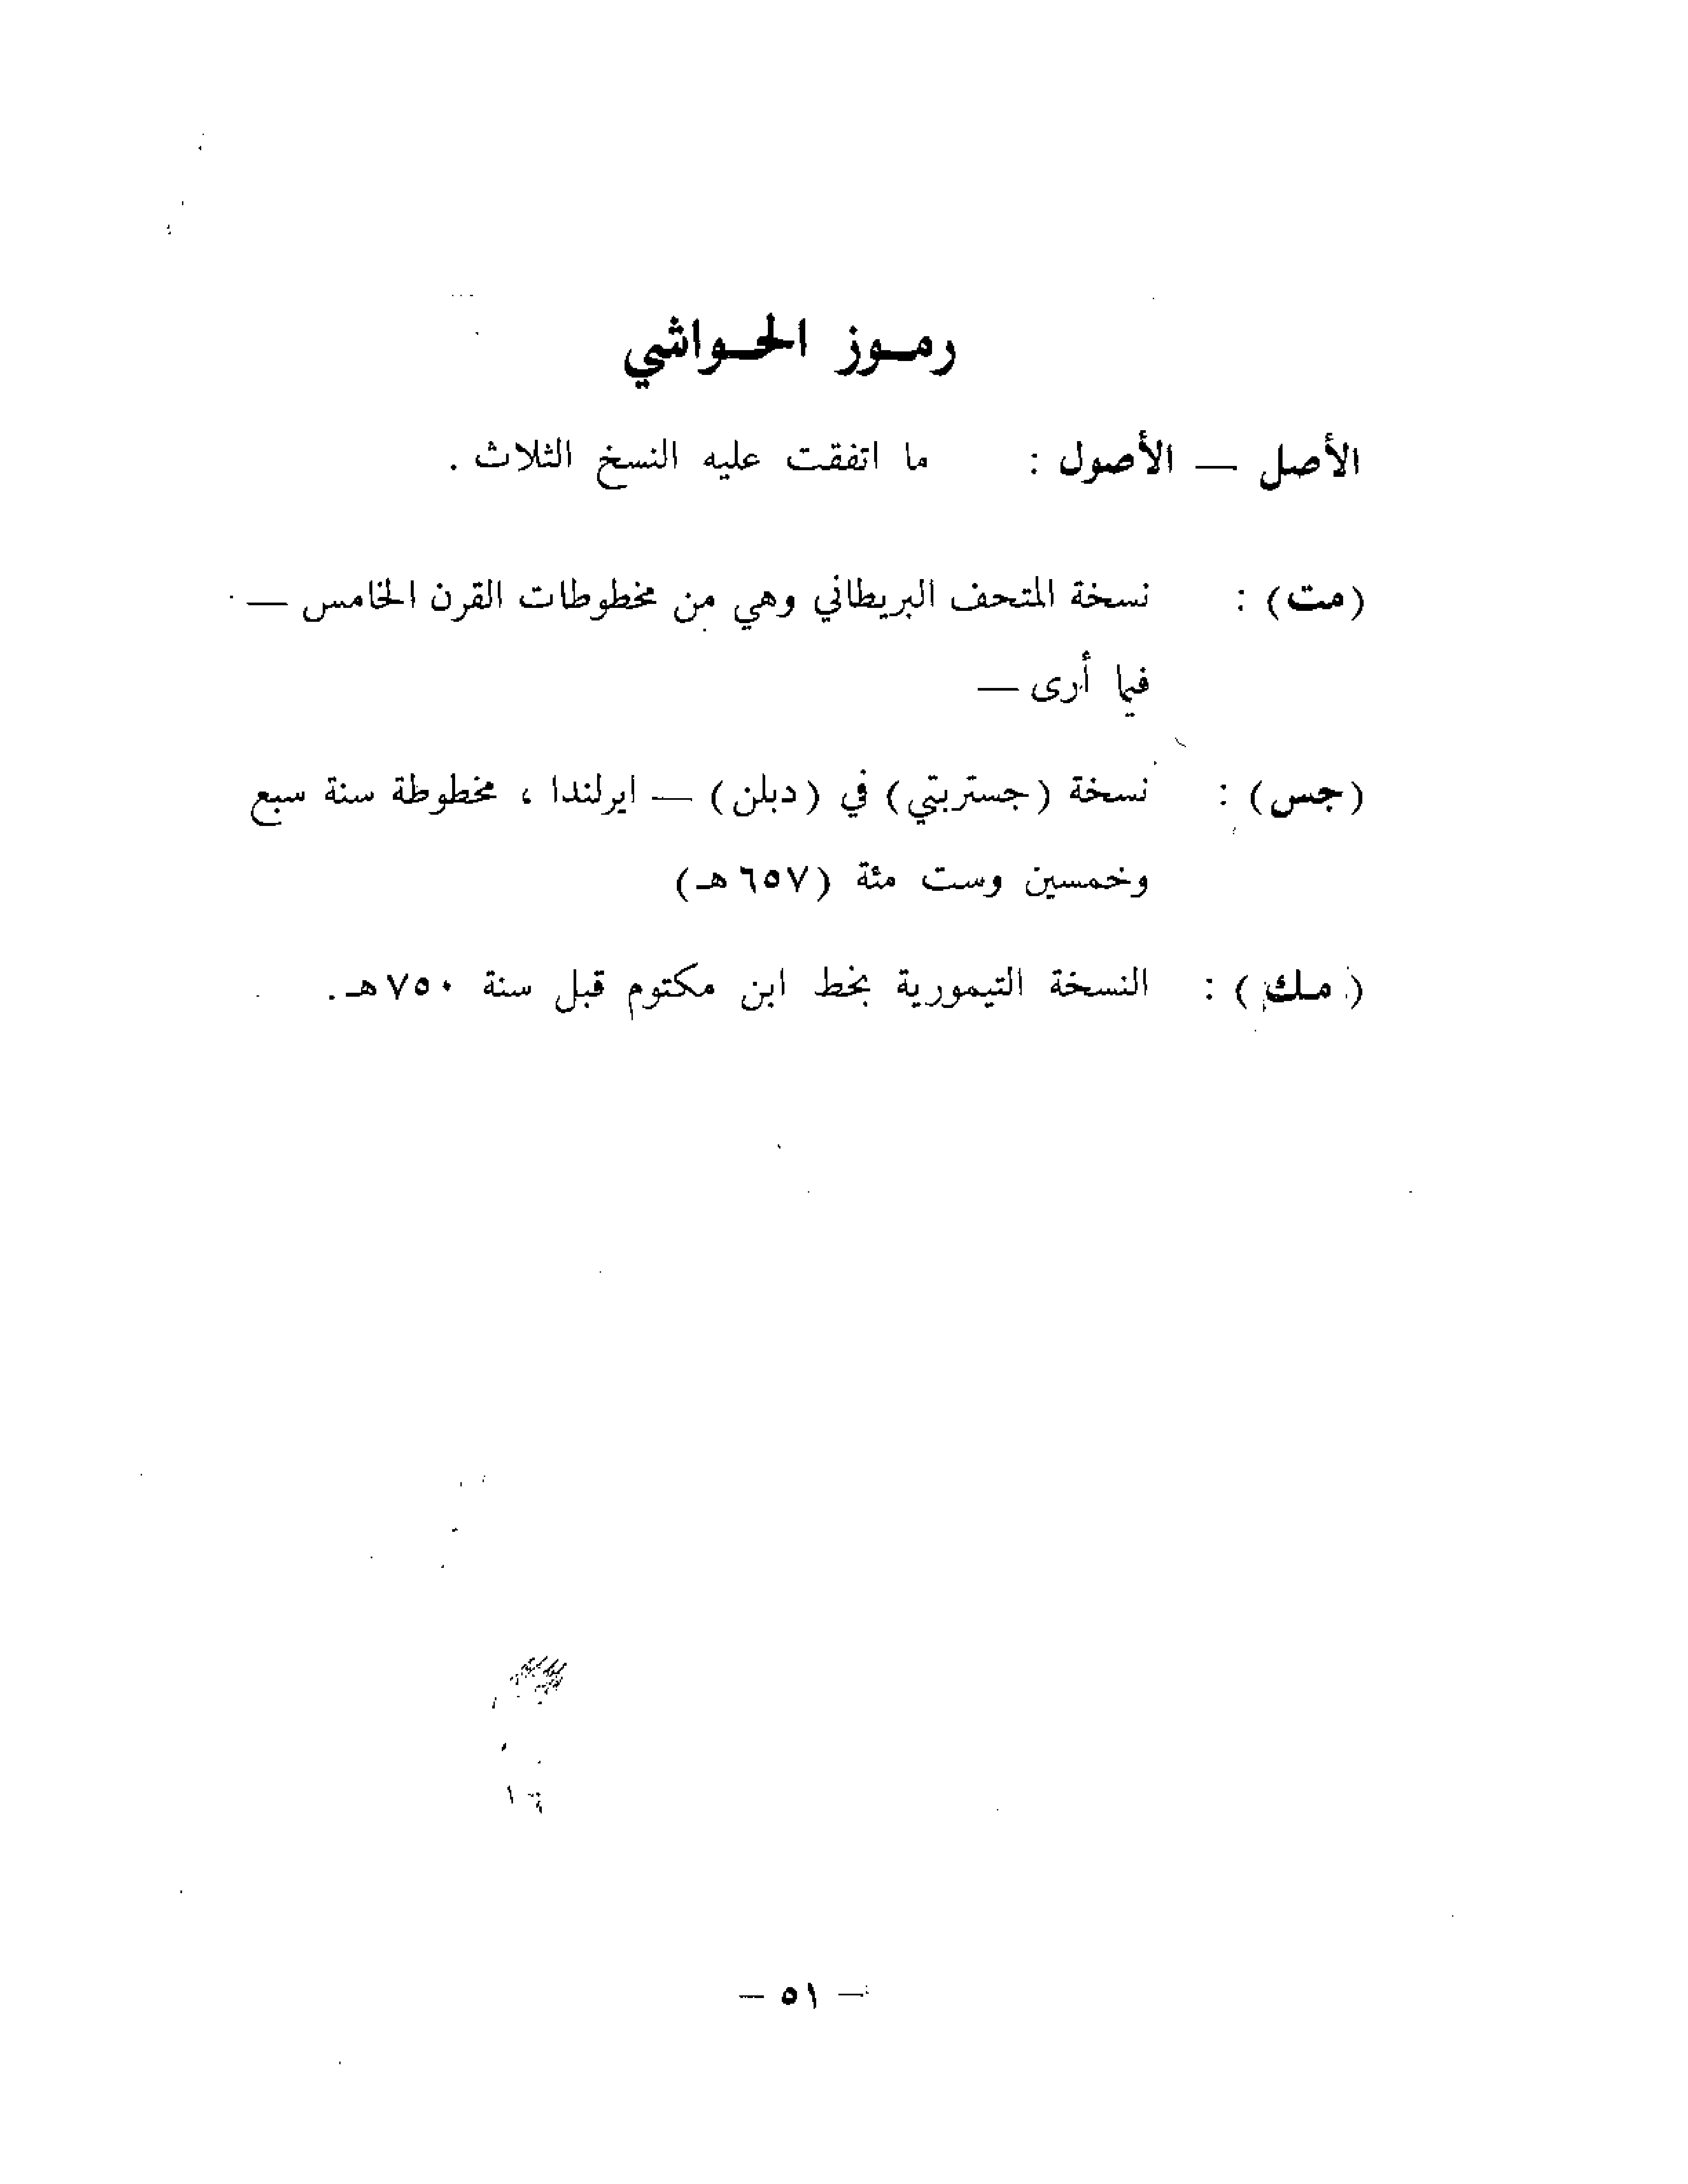 رموز الحواشي
الأصل — الأصول : ما اتفقت عليه النسخ الثلاث .
(مت) : نسخة المتحف البريطاني وهي من مخطوطات القرن الخامس —
فيما أرى —
(جس) : نسخة (جستربتي) في (دبلن) — ايرلندا ، مخطوطة سنة سبع
وخمسين وست مئة (٦٥٧هـ)
(مك) : النسخة التيمورية بخط ابن مكتوم قبل سنة ٧٥٠هـ .
— ٥١ —